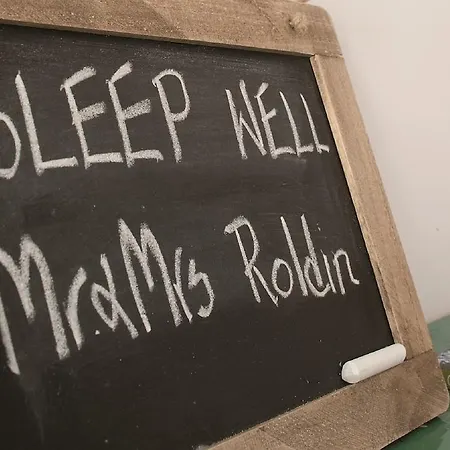 SLEEP WELL
Mr&Mrs Roldin